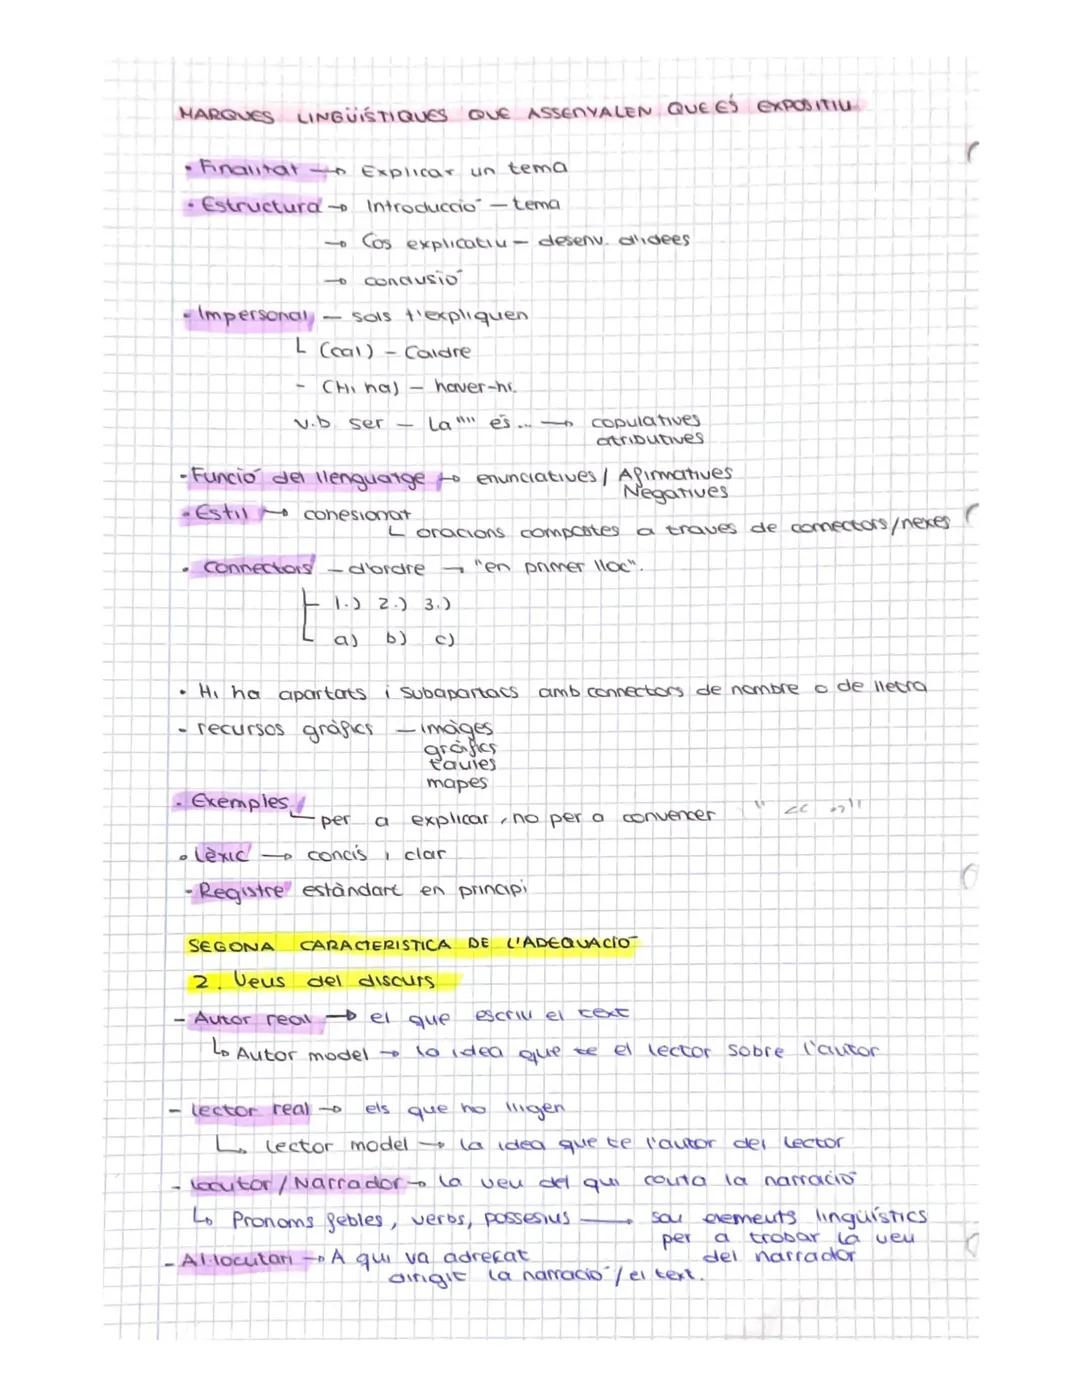 MARQUES LINGÜÍSTIQUES QUE ASSENYALEN QUE ÉS EXPOSITIU
• Finalitat → Explicar un tema
• Estructura → Introducció — tema
→ Cos explicatiu — desenv. d'idees
→ conclusió
- Impersonal — sols t'expliquen
(cal) - Caldre
- (Hi ha) — haver-hi.
v.b. ser — La """ és... → copulatives
atributives
- Funció del llenguatge → enunciatives / Afirmatives
Negatives
- Estil → cohesionat
oracions compostes a través de connectors/nexes
• Connectors — d'ordre → "en primer lloc".
1.) 2.) 3.)
a) b) c)
• Hi ha apartats i subapartats amb connectors de nombre o de lletra
- recursos gràfics — imàges
gràfics
taules
mapes
• Exemples
per a explicar, no per a convencer " << >> "
• Lèxic → concís i clar
- Registre estàndart en principi
SEGONA CARACTERISTICA DE L'ADEQUACIÓ
2. Veus del discurs
- Autor real → el que escriu el text
↳ Autor model → la idea que te el lector sobre l'autor
- lector real → els que ho lligen
↳ lector model → la idea que te l'autor del lector
- locutor / Narrador → la veu del qui conta la narració
↳ Pronoms febles, verbs, possesius → sou elements lingüístics
per a trobar la veu
del narrador
- Al·locutari → A qui va adreçat
dirigit la narració / el text.